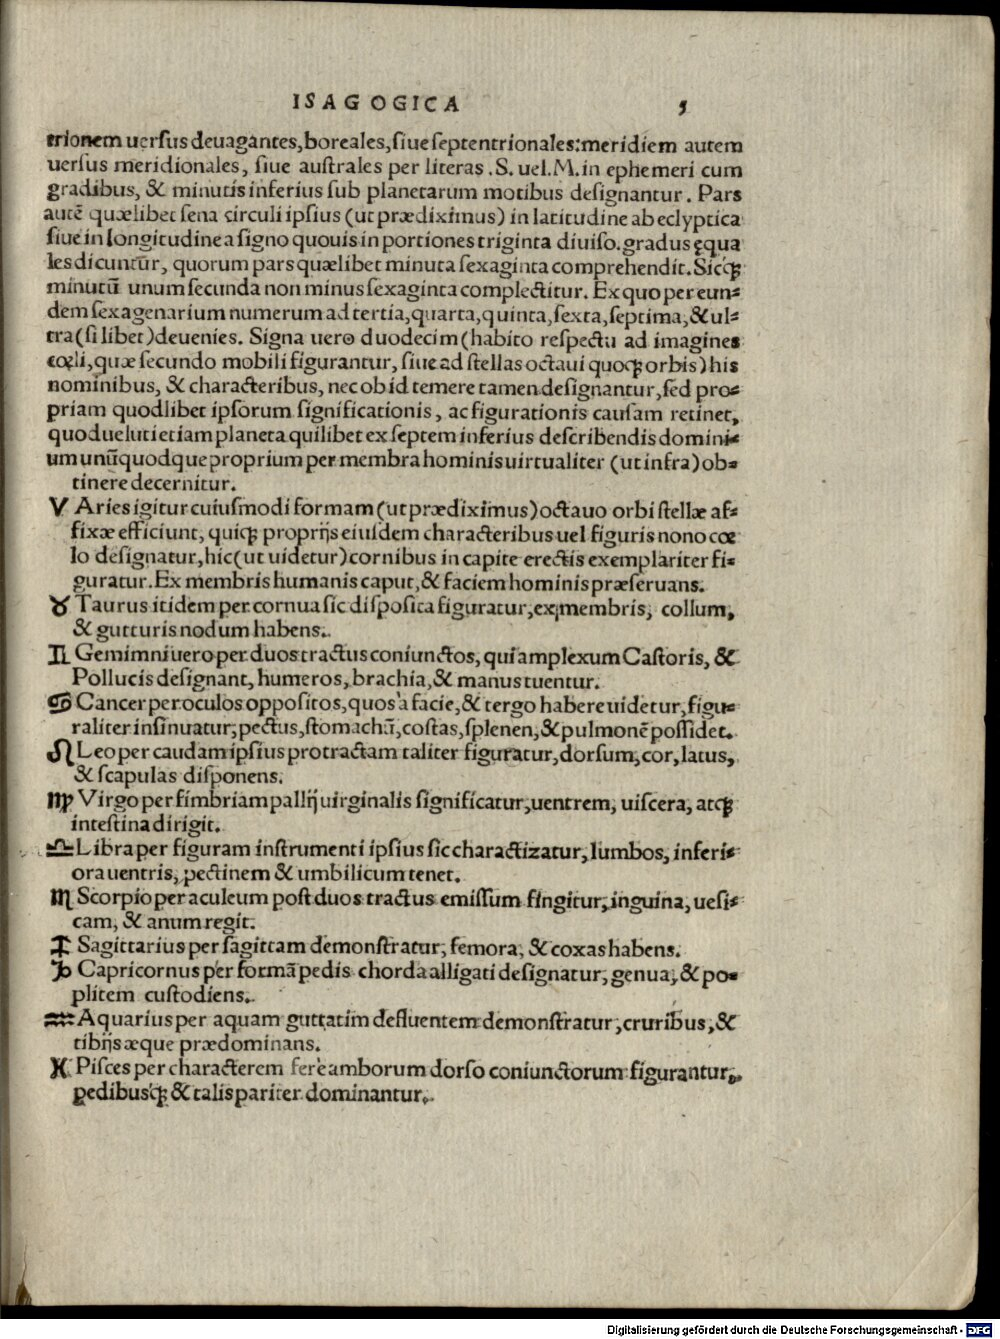 ISAGOGICA 5
trionem uersus deuagantes, boreales, siue septentrionales: meridiem autem
uersus meridionales, siue australes per literas .S. uel .M. in ephemeri cum
gradibus, & minutis inferius sub planetarum motibus designantur. Pars
autē quælibet sena circuli ipsius (ut prædiximus) in latitudine ab eclyptica
siue in longitudine a signo quouis in portiones triginta diuiso. gradus ęqua
les dicunt̄ur, quorum pars quælibet minuta sexaginta comprehendit. Sicq́;
minutū unum secunda non minus sexaginta complectitur. Ex quo per eun⸗
dem sexagenarium numerum ad tertia, quarta, quinta, sexta, septima, & ul⸗
tra (si libet) deuenies. Signa uero duodecim (habito respectu ad imagines
cœli, quæ secundo mobili figurantur, siue ad stellas octaui quoq; orbis) his
nominibus, & characteribus, nec ob id temere tamen designantur, sed pro⸗
priam quodlibet ipsorum significationis, ac figurationis causam retinet,
quod ueluti etiam planeta quilibet ex septem inferius describendis domini⸗
um unūquodque proprium per membra hominis uirtualiter (ut infra) ob⸗
tinere decernitur.
♈ Aries igitur cuiusmodi formam (ut prædiximus) octauo orbi stellæ af⸗
fixæ efficiunt, quiq; proprijs eiusdem characteribus uel figuris nono cœ
lo designatur, hic (ut uidetur) cornibus in capite erectis exemplariter fi⸗
guratur. Ex membris humanis caput, & faciem hominis præseruans.
♉ Taurus itidem per cornua sic disposita figuratur, ex membris, collum,
& gutturis nodum habens.
♊ Gemimni uero per duos tractus coniunctos, qui amplexum Castoris, &
Pollucis designant, humeros, brachia, & manus tuentur.
♋ Cancer per oculos oppositos, quos à facie, & tergo habere uidetur, figu⸗
raliter insinuatur, pectus, stomachū, costas, splenen, & pulmonē possidet.
♌ Leo per caudam ipsius protractam taliter figuratur, dorsum, cor, latus,
& scapulas disponens.
♍ Virgo per fimbriam pallij uirginalis significatur, uentrem, uiscera, atq;
intestina dirigit.
♎ Libra per figuram instrumenti ipsius sic charactizatur, lumbos, inferi⸗
ora uentris, pectinem & umbilicum tenet.
♏ Scorpio per aculeum post duos tractus emissum fingitur, inguina, uesi⸗
cam, & anum regit.
♐ Sagittarius per sagittam demonstratur, femora, & coxas habens.
♑ Capricornus per formā pedis chorda alligati designatur, genua, & po⸗
plitem custodiens.
♒ Aquarius per aquam guttatim defluentem demonstratur, cruribus, &
tibijs æque prædominans.
♓ Pisces per characterem fere amborum dorso coniunctorum figurantur,
pedibusq́; & talis pariter dominantur.
Digitalisierung gefördert durch die Deutsche Forschungsgemeinschaft - DFG